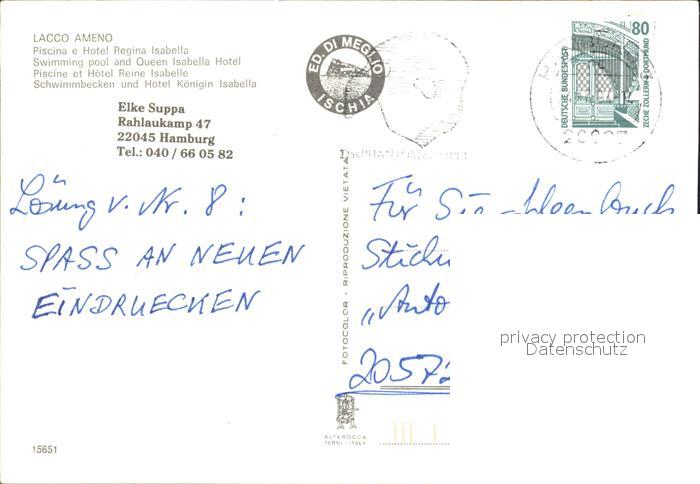 LACCO AMENO
Piscina e Hotel Regina Isabella
Swimming pool and Queen Isabella Hotel
Piscine et Hôtel Reine Isabelle
Schwimmbecken und Hotel Königin Isabella
Elke Suppa
Rahlaukamp 47
22045 Hamburg
Tel.: 040 / 66 05 82
ED. DI MEGLIO
ISCHIA
80
DEUTSCHE BUNDESPOST
ZECHE ZOLLERN II · DORTMUND
Lösung v. Nr. 8 :
SPASS AN NEUEN
EINDRUECKEN
FOTOCOLOR - RIPRODUZIONE VIETATA
Für Sie
„Auto
2057
privacy protection
Datenschutz
ALTEROCCA
TERNI - ITALY
15651